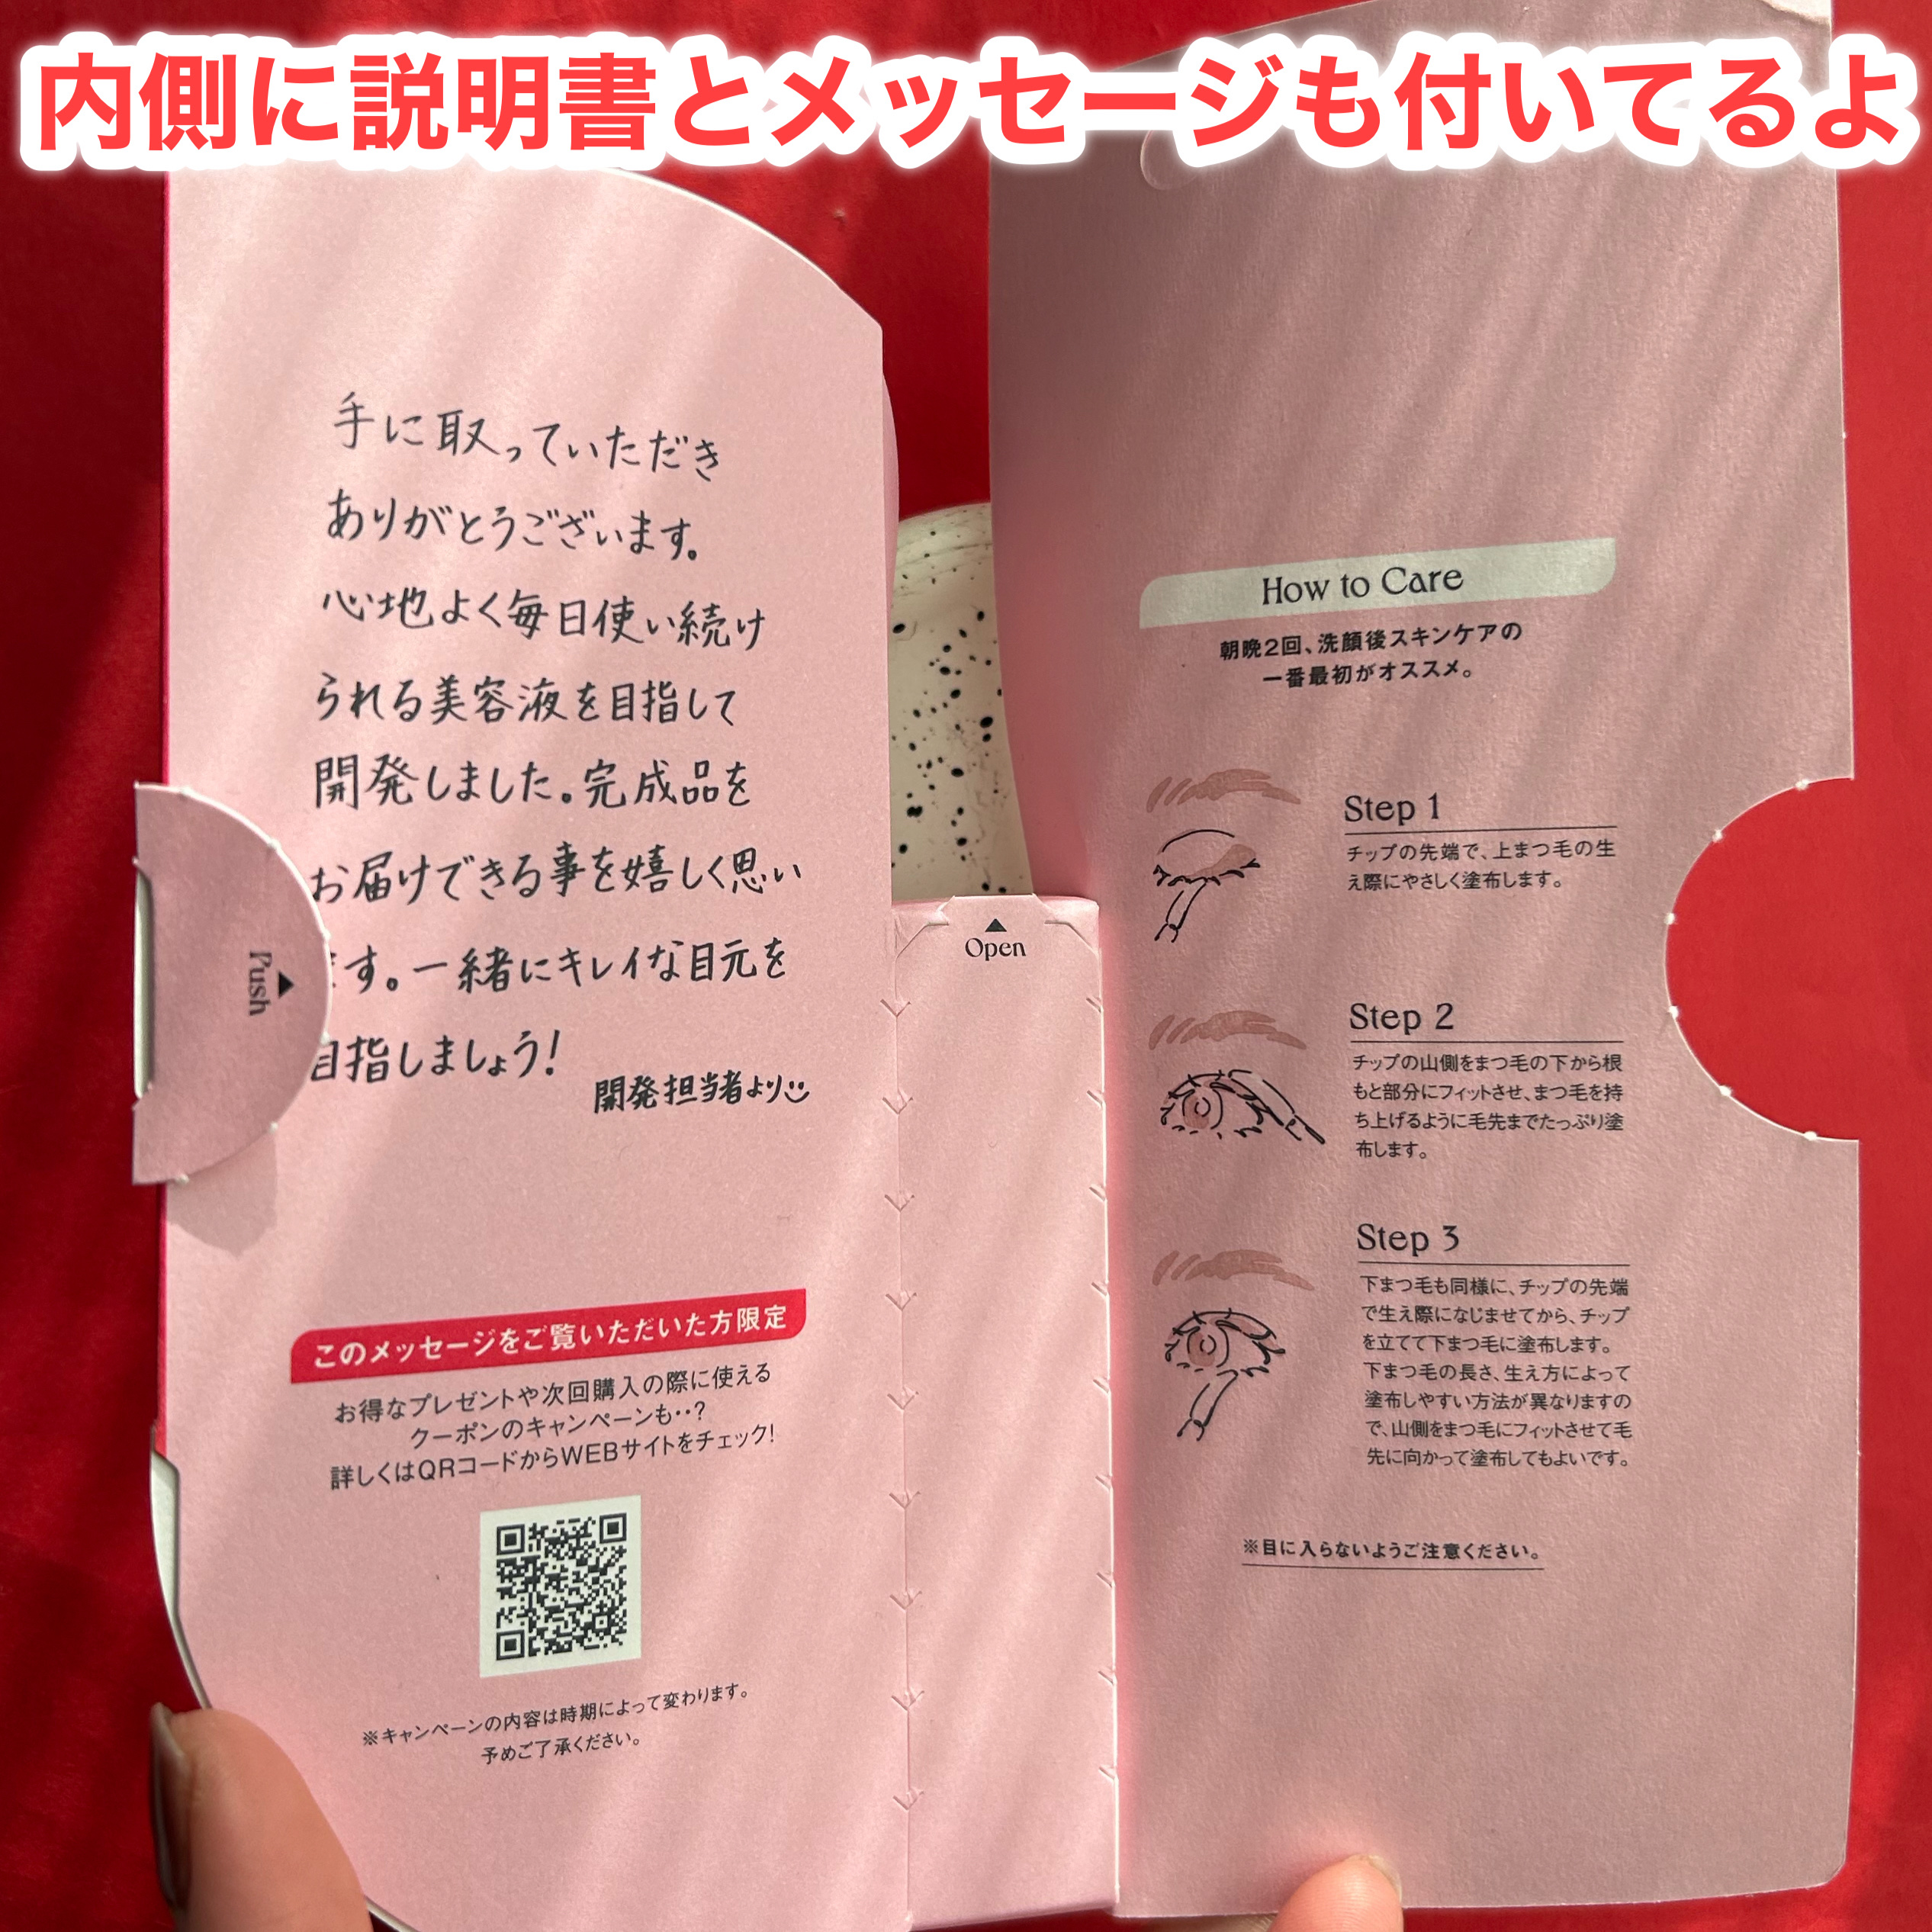 内側に説明書とメッセージも付いてるよ
手に取っていただき
ありがとうございます。
心地よく毎日使い続け
られる美容液を目指して
開発しました。完成品を
お届けできる事を嬉しく思い
ます。一緒にキレイな目元を
目指しましょう!
開発担当者より
Push
このメッセージをご覧いただいた方限定
お得なプレゼントや次回購入の際に使える
クーポンのキャンペーンも‥?
詳しくはQRコードからWEBサイトをチェック!
※キャンペーンの内容は時期によって変わります。
予めご了承ください。
Open
How to Care
朝晩2回、洗顔後スキンケアの
一番最初がオススメ。
Step 1
チップの先端で、上まつ毛の生
え際にやさしく塗布します。
Step 2
チップの山側をまつ毛の下から根
もと部分にフィットさせ、まつ毛を持
ち上げるように毛先までたっぷり塗
布します。
Step 3
下まつ毛も同様に、チップの先端
で生え際になじませてから、チップ
を立てて下まつ毛に塗布します。
下まつ毛の長さ、生え方によって
塗布しやすい方法が異なりますの
で、山側をまつ毛にフィットさせて毛
先に向かって塗布してもよいです。
※目に入らないようご注意ください。